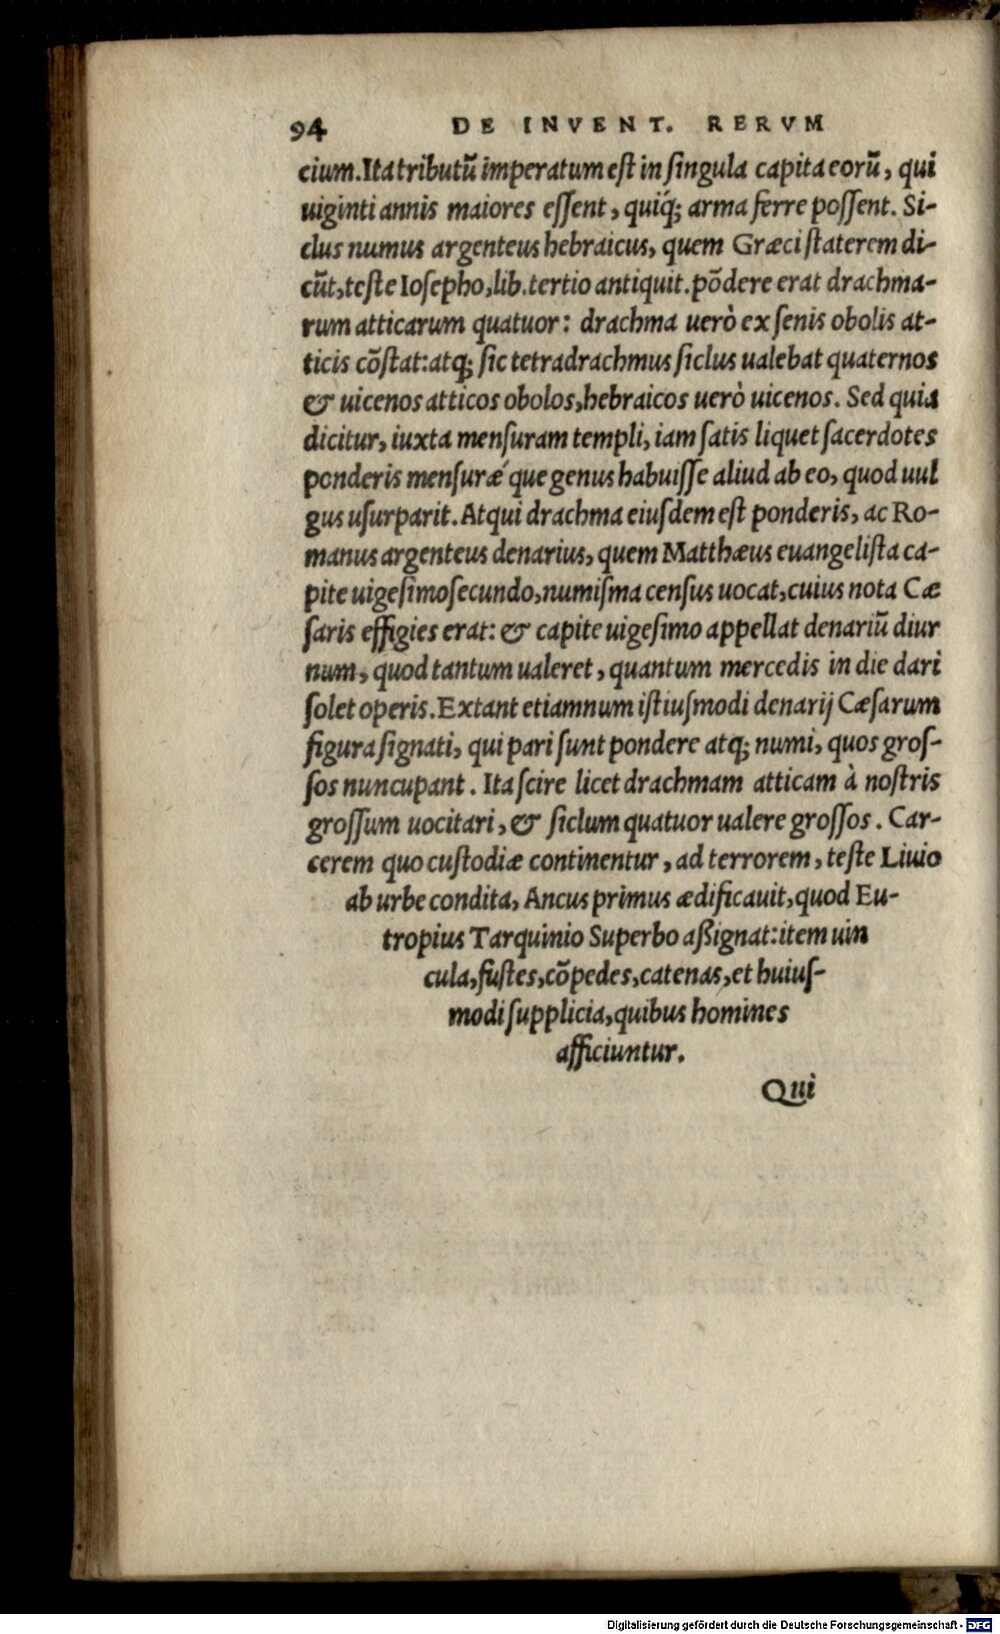 94 DE INVENT. RERVM
cium. Ita tributũ imperatum est in singula capita eorũ, qui
uiginti annis maiores essent, quiq́; arma ferre possent. Si-
clus numus argenteus hebraicus, quem Græci staterem di-
cũt, teste Iosepho, lib. tertio antiquit. põdere erat drachma-
rum atticarum quatuor: drachma uerò ex senis obolis at-
ticis cõstat: atq; sic tetradrachmus siclus ualebat quaternos
& uicenos atticos obolos, hebraicos uerò uicenos. Sed quia
dicitur, iuxta mensuram templi, iam satis liquet sacerdotes
ponderis mensuræ´ que genus habuisse aliud ab eo, quod uul
gus usurparit. Atqui drachma eiusdem est ponderis, ac Ro-
manus argenteus denarius, quem Matthæus euangelista ca-
pite uigesimosecundo, numisma census uocat, cuius nota Cæ
saris effigies erat: & capite uigesimo appellat denariũ diur
num, quod tantum ualeret, quantum mercedis in die dari
solet operis. Extant etiamnum istiusmodi denarij Cæsarum
figura signati, qui pari sunt pondere atq; numi, quos gros-
sos nuncupant. Ita scire licet drachmam atticam à nostris
grossum uocitari, & siclum quatuor ualere grossos. Car-
cerem quo custodiæ continentur, ad terrorem, teste Liuio
ab urbe condita, Ancus primus ædificauit, quod Eu-
tropius Tarquinio Superbo aßignat: item uin
cula, fustes, cõpedes, catenas, et huius-
modi supplicia, quibus homines
afficiuntur.
Qui
Digitalisierung gefördert durch die Deutsche Forschungsgemeinschaft - DFG